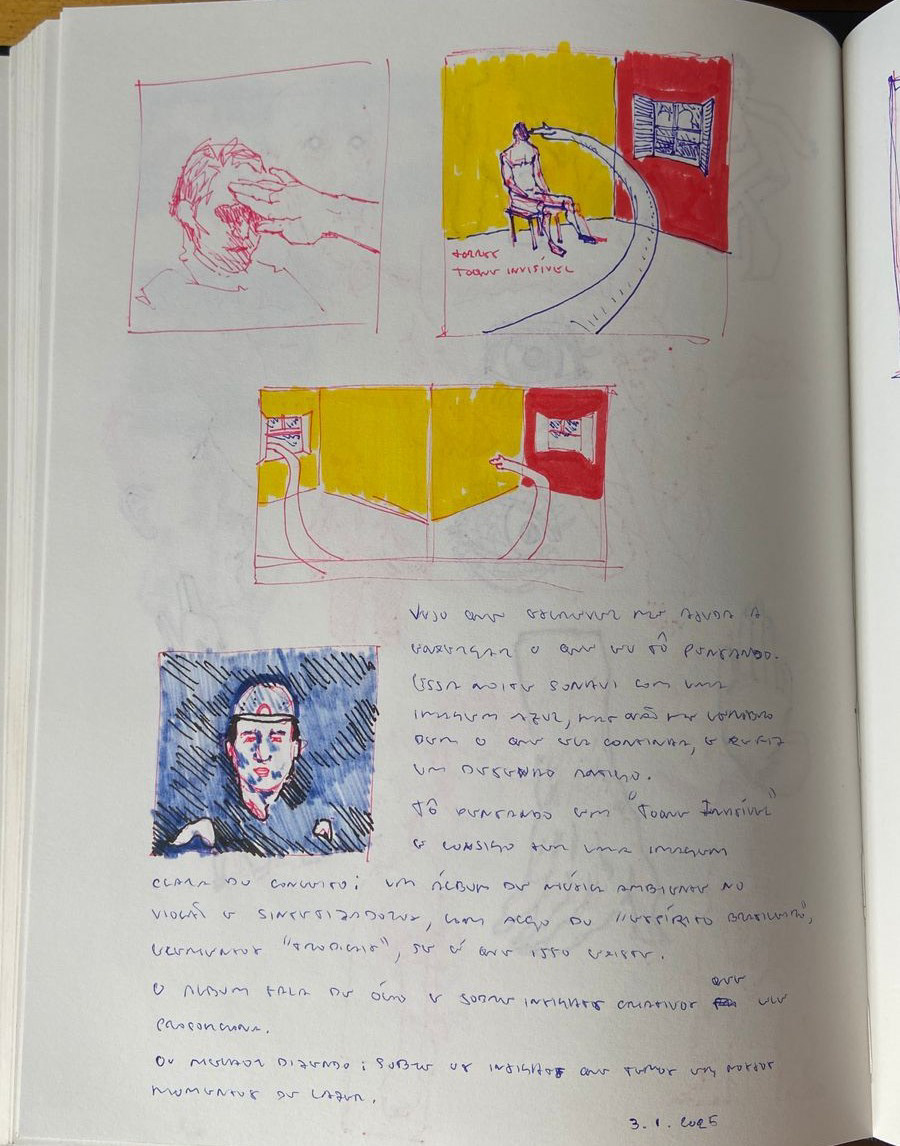 TORRES
TOQUE INVISÍVEL
VEJO QUE ESCREVER ME AJUDA A
ENXERGAR O QUE EU TÔ PENSANDO.
ESSA NOITE SONHEI COM UMA
IMAGEM AZUL, MAS NÃO ME LEMBRO
BEM O QUE ELA CONTINHA, E REFIZ
UM DESENHO ANTIGO.
TÔ PENSANDO EM "TOQUE INVISÍVEL"
E CONSIGO TER UMA IMAGEM
CLARA DO CONCEITO: UM ÁLBUM DE MÚSICA AMBIENTE NO
VIOLÃO E SINTETIZADORES, COM ALGO DO "ESPÍRITO BRASILEIRO",
ELEMENTOS "TROPICAIS", SE É QUE ISSO EXISTE.
O ÁLBUM FALA DE ÓCIO E SOBRE INSIGHTS CRIATIVOS QUE ELE
PROPORCIONA.
OU MELHOR DIZENDO: SOBRE OS INSIGHTS QUE TEMOS EM NOSSOS
MOMENTOS DE LAZER.
3.1.2025